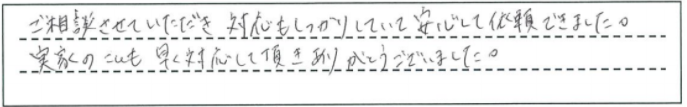 ご相談させていただき 対応もしっかりしていて安心して依頼できました。
実家のことも早く対応して頂きありがとうございました。